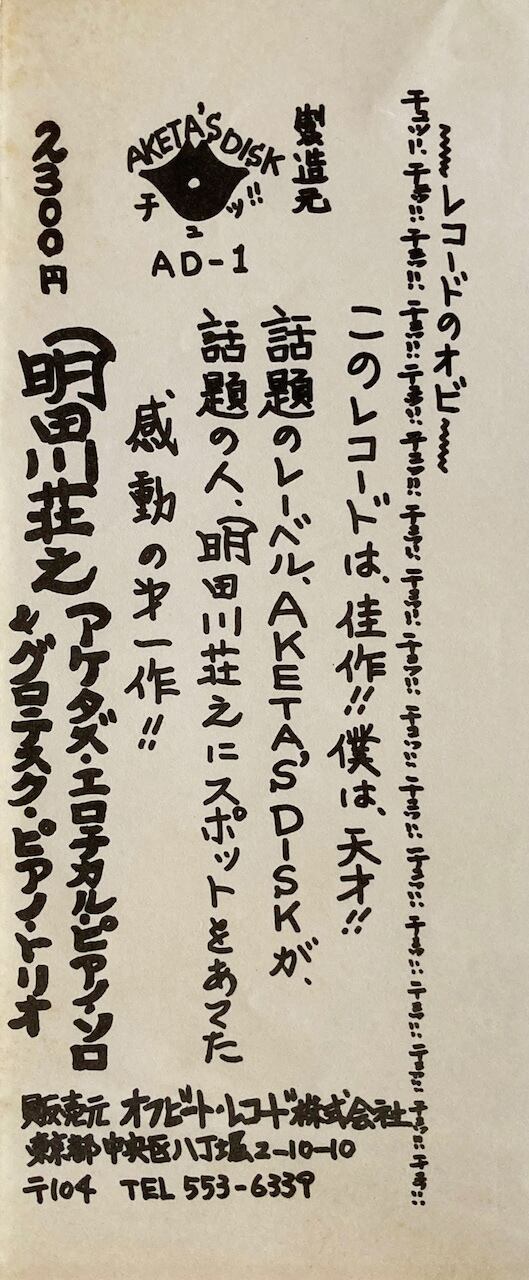 ～～レコードのオビ～～
チュッ!! チュッ!! チュッ!! チュッ!! チュッ!! チュッ!! チュッ!! チュッ!! チュッ!! チュッ!! チュッ!! チュッ!! チュッ!! チュッ!! チュッ!! チュッ!!
製造元
AKETA'S DISK
チュッ!!
AD-1
このレコードは、佳作!! 僕は、天才!!
話題のレーベル、AKETA'S DISKが、
話題の人、明田川荘之にスポットをあてた
感動の才一作!!
2300円
明田川荘之
アケタズ・エロチカル・ピアノ・ソロ
&グロテスク・ピアノ・トリオ
販売元 オフビート・レコード株式会社
東京都中央区八丁堀2-10-10
〒104 TEL 553-6339